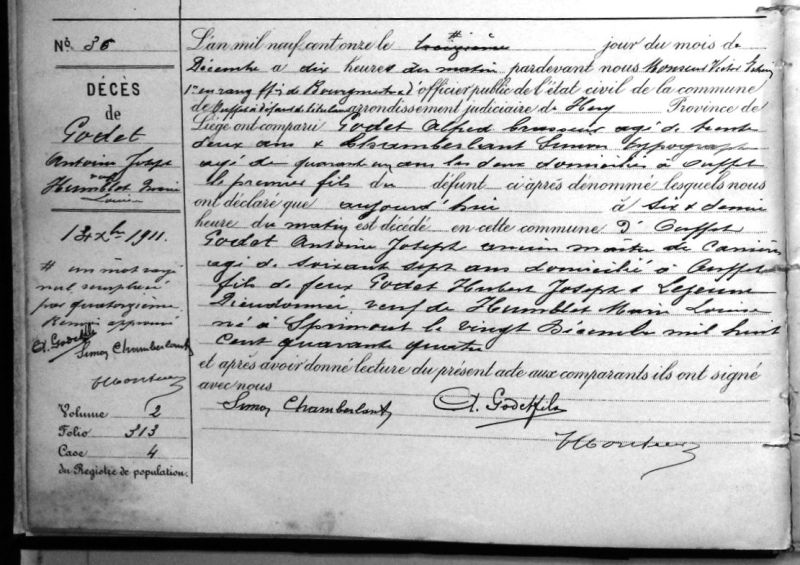 No. 36
DÉCÈS
de
Godet
Antoine Joseph
Humblot Marie
Louise
14 Xbre 1911.
# un mot rayé
nul remplacé
par quatorzième
Renvoi approuvé
A. Godet fils
Simon Chamberlant
Volume 2
Folio 313
Case 4
du Registre de population.
L'an mil neuf cent onze le # treizième jour du mois de
Décembre a dix heures du matin pardevant nous Monsieur Victor
1er en rang ff de Bourgmestre d'officier public de l'état civil de la commune
de Ouffet à défaut de titulaire arrondissement judiciaire de Huy Province de
Liège ont comparu Godet Alfred brasseur agé de trente
deux ans & Chamberlant Simon typographe
agé de quarante un ans les deux domiciliés à Ouffet
le premier fils du défunt ci après dénommé lesquels nous
ont déclaré que aujourd'hui à six & demie
heure du matin est décédé en cette commune d'Ouffet
Godet Antoine Joseph ancien maître de carrière
agé de soixante sept ans domicilié à Ouffet
fils de feux Godet Hubert Joseph & Lejeune
Dieudonnée, veuf de Humblot Marie Louise
né à Sprimont le vingt Décembre mil huit
cent quarante quatre
et après avoir donné lecture du présent acte aux comparants ils ont signé
avec nous
Simon Chamberlant A. Godet fils